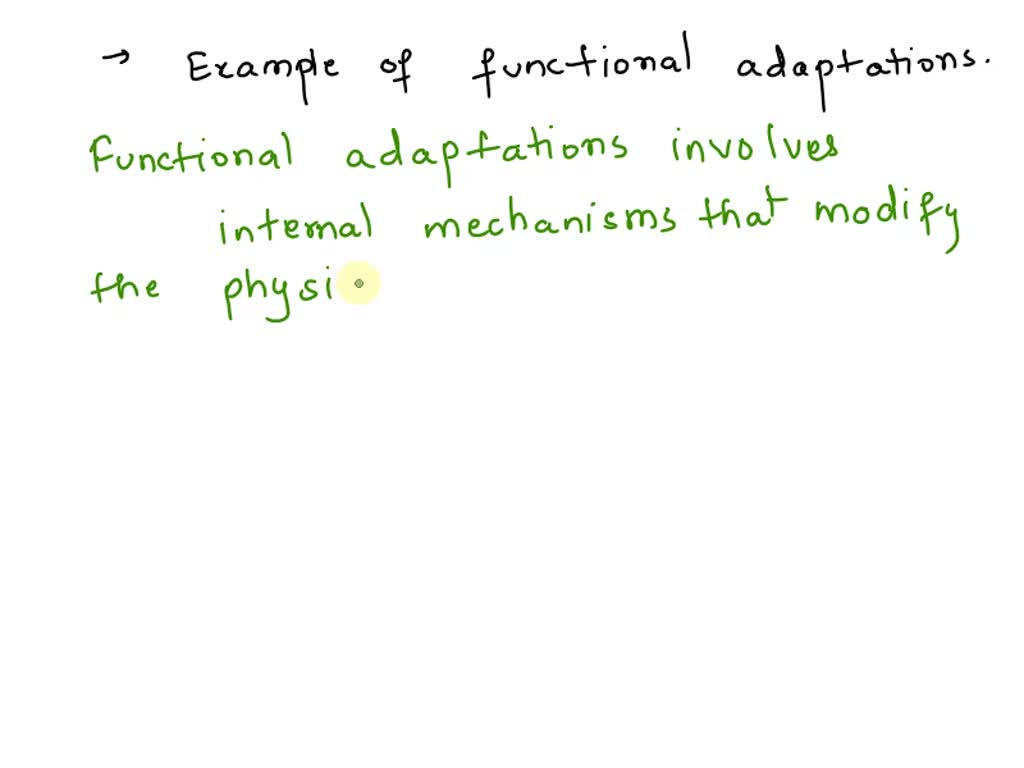 → Example of functional adaptations.
Functional adaptations involves
internal mechanisms that modify
the physi